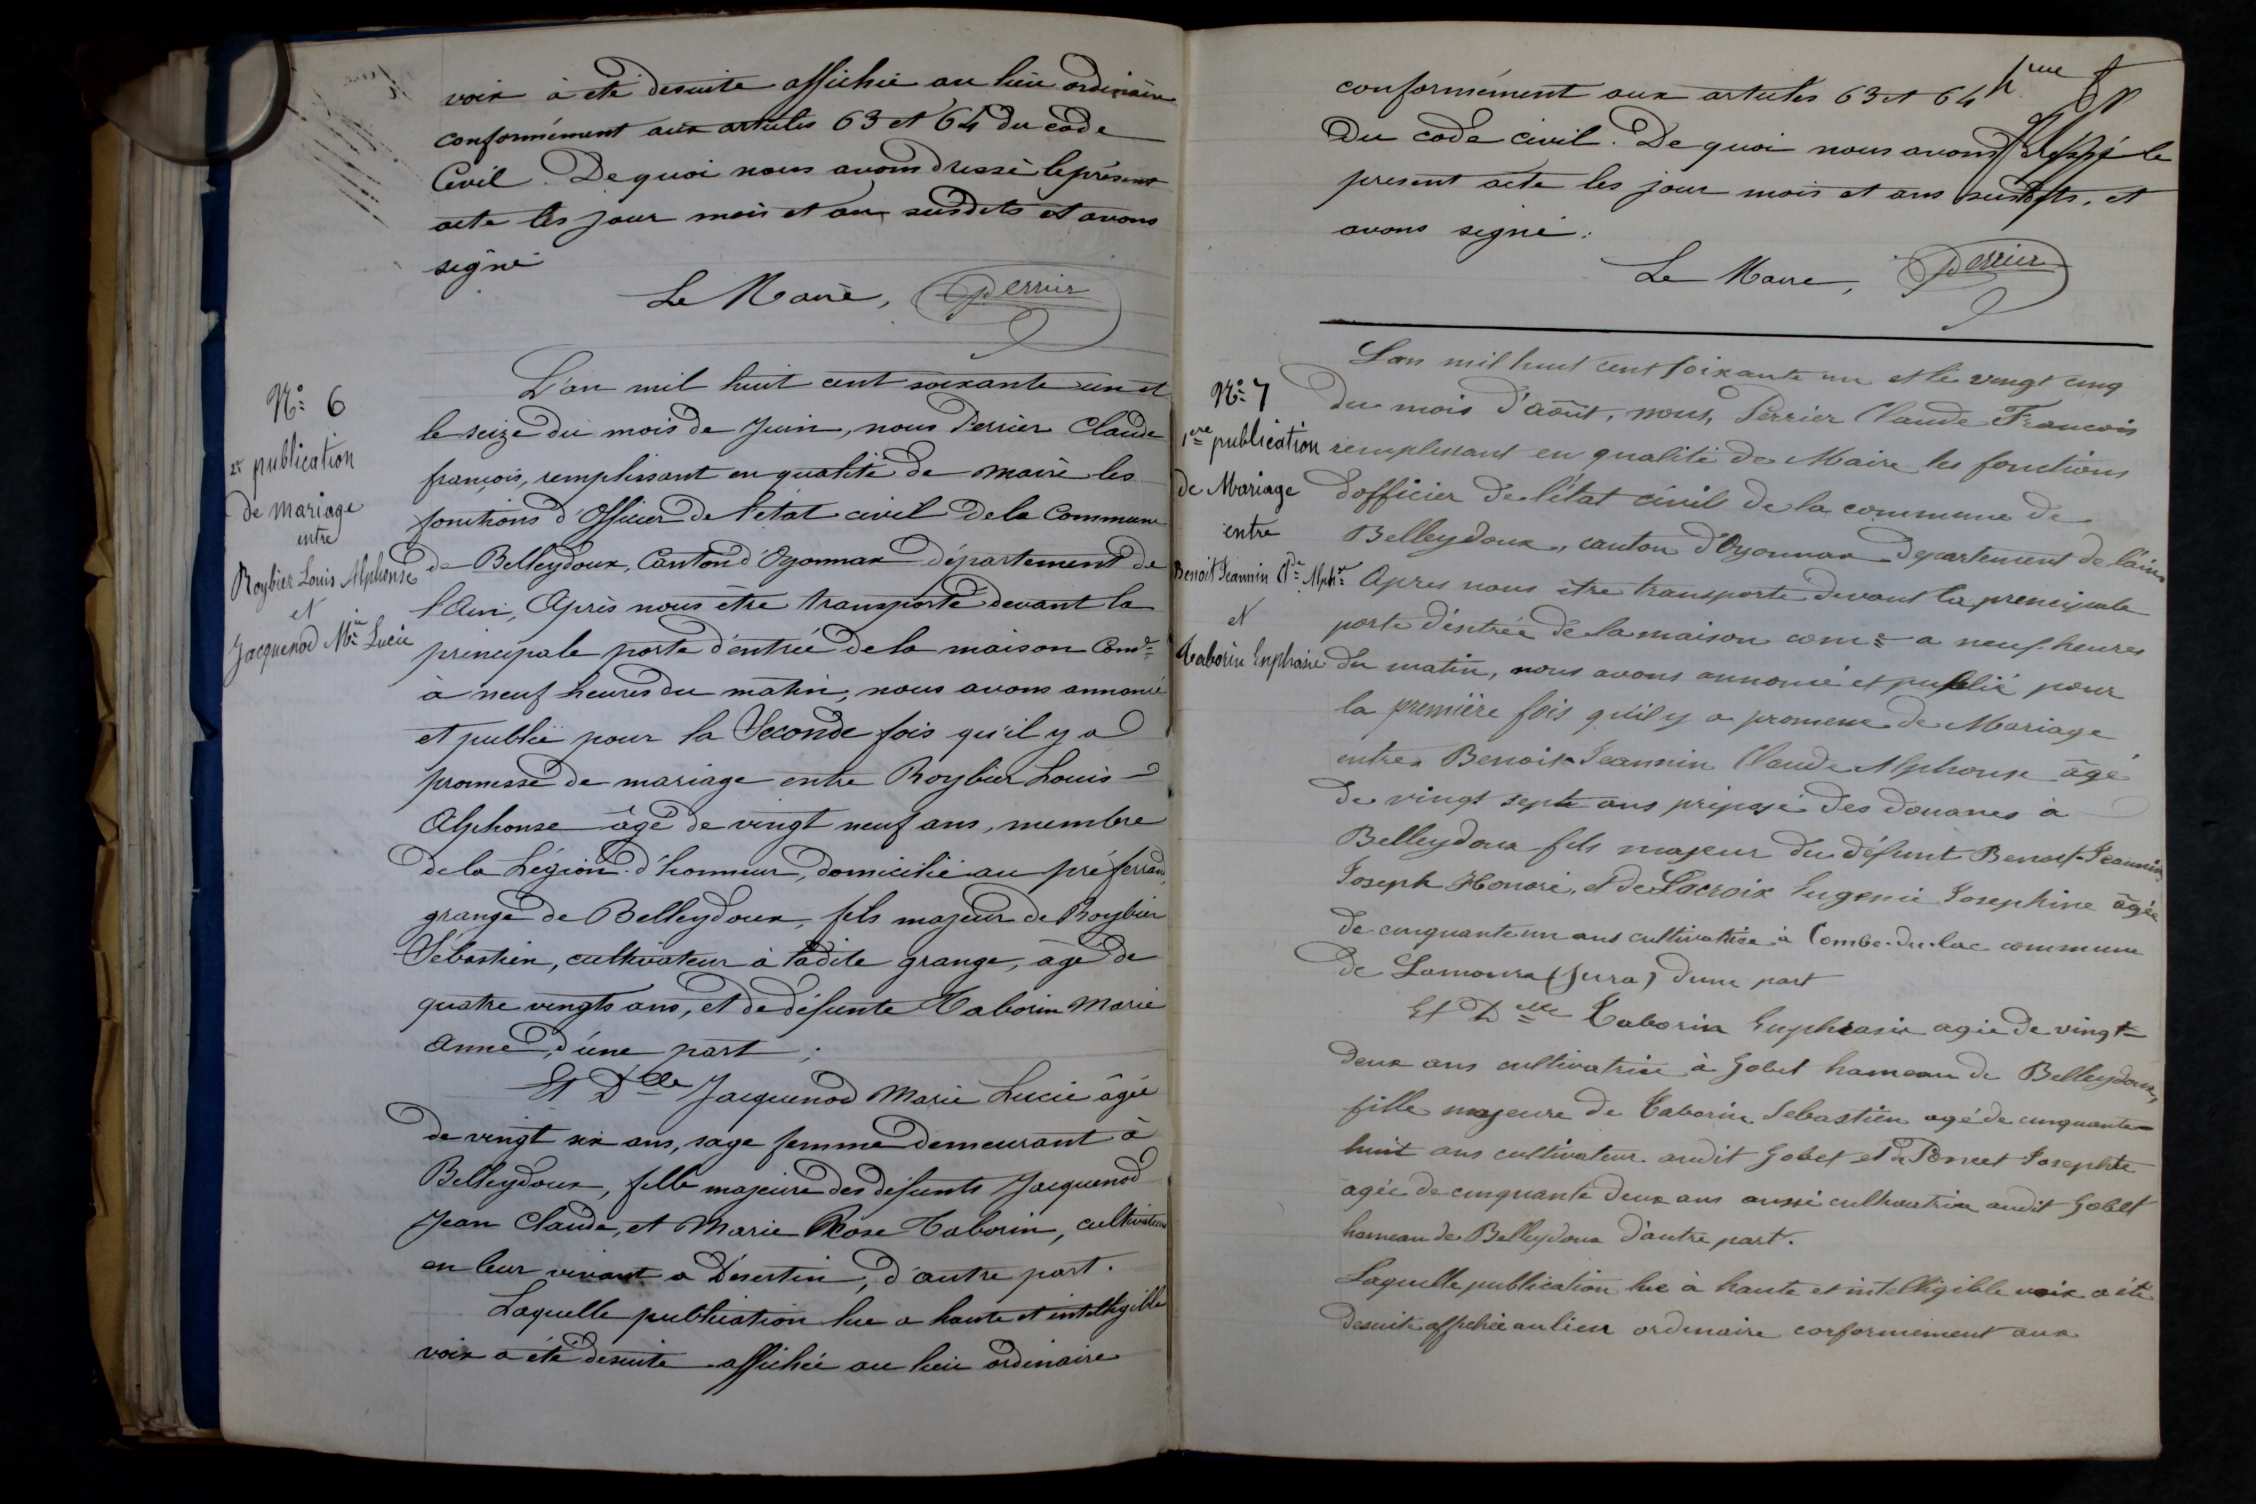 voix a été desuite affichée au lieu ordinaire
conformément aux articles 63 et 64 du code
Civil. De quoi nous avons dressé le présent
acte les jour mois et an susdits et avons
signé
Le Maire, Perrier
N° 6
2e publication
de mariage
entre
Roybier Louis Alphonse
et
Jacquenod Mie Lucie
L'an mil huit cent soixante un et
le seize du mois de Juin, nous Perrier Claude
françois, remplissant en qualité de maire les
fonctions d'Officier de l'état civil de la Commune
de Belleydoux, Canton d'Oyonnax département de
l'Ain, Après nous être transporté devant la
principale porte d'entrée de la maison Come
à neuf heures du matin, nous avons annoncé
et publié pour la Seconde fois qu'il y a
promesse de mariage entre Roybier Louis
Alphonse âgé de vingt neuf ans, membre
de la Légion d'honneur, domicilié au pré ferrand,
grange de Belleydoux, fils majeur de Roybier
Sébastien, cultivateur à ladite grange, âgé de
quatre vingts ans, et de défunte Taborin Marie
Anne, d'une part;
Et Dlle Jacquenod Marie Lucie âgée
de vingt six ans, sage femme demeurant à
Belleydoux, fille majeure des défunts Jacquenod
Jean Claude, et Marie Rose Taborin, cultivateurs
en leur vivant a Désertin, d'autre part.
Laquelle publication lue a haute et intelligible
voix a été desuite affichée au lieu ordinaire
conformément aux articles 63 et 64
du code civil. De quoi nous avons dressé le
présent acte les jour mois et ans susdits, et
avons signé.
Le Maire, Perrier
N° 7
1ere publication
de Mariage
entre
Benoit Jeannin Cde Alphse
et
Taborin Euphrasie
L'an mil huit cent soixante un et le vingt cinq
du mois d'août, nous, Perrier Claude François
remplissant en qualité de Maire les fonctions
d'officier de l'état civil de la commune de
Belleydoux, canton d'Oyonnax département de l'ain
Après nous être transporté devant la principale
porte d'entrée de la maison come a neuf heures
du matin, nous avons annoncé et publié pour
la première fois qu'il y a promesse de Mariage
entre Benoit-Jeannin Claude Alphonse âgé
de vingt sept ans préposé des douanes à
Belleydoux fils majeur du défunt Benoit-Jeannin
Joseph Honoré, et de Lacroix Eugenie Josephine âgée
de cinquante un ans cultivatrice à Combe-du-lac commune
de Lamoura (Jura) d'une part
Et Dlle Taborin Euphrasie agée de vingt
deux ans cultivatrice à Gobet hameau de Belleydoux,
fille majeure de Taborin Sebastien agé de cinquante
huit ans cultivateur audit Gobet et de Poncet Josephte
agée de cinquante deux ans aussi cultivatrice audit Gobet
hameau de Belleydoux d'autre part.
Laquelle publication lue à haute et intelligible voix a été
desuite affichée au lieu ordinaire conformement aux